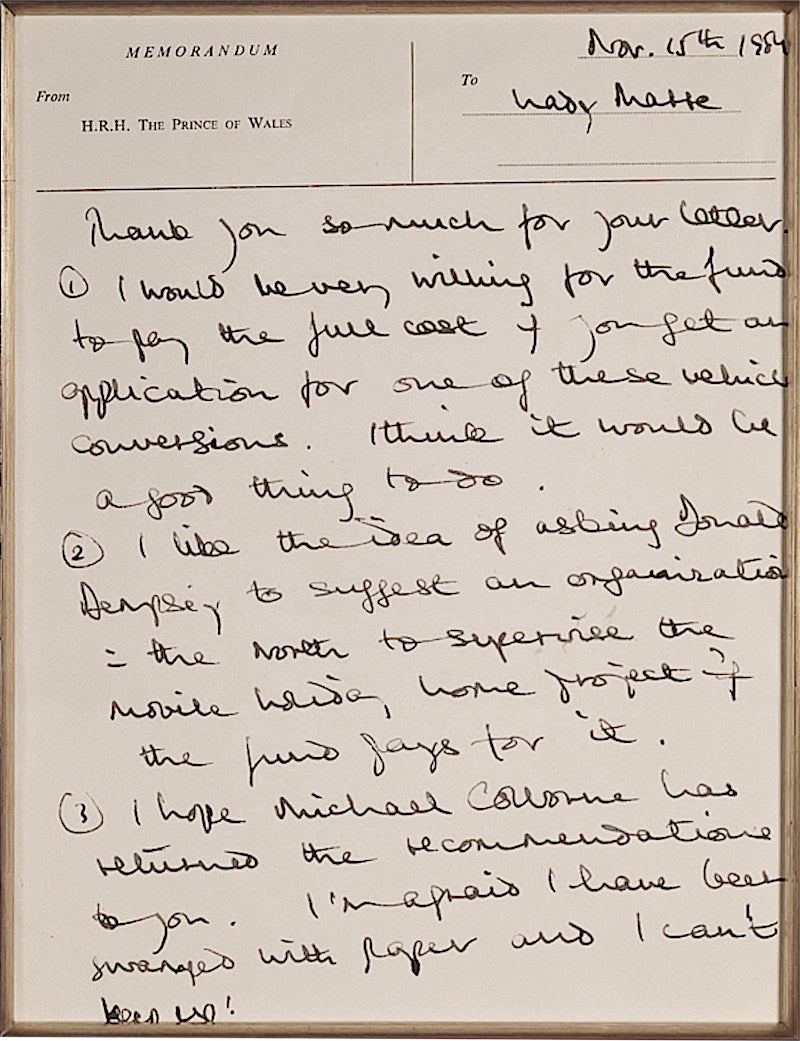 MEMORANDUM
Nov. 15th 1984
From
To
Lady Marre
H.R.H. THE PRINCE OF WALES
Thank you so much for your letter.
① I would be very willing for the fund
to pay the full cost if you get an
application for one of these vehicle
conversions. I think it would be
a good thing to do.
② I like the idea of asking Donald
Dempsey to suggest an organization
in the North to supervise the
mobile holiday home project if
the fund pays for it.
③ I hope Michael Colborne has
returned the recommendations
to you. I'm afraid I have been
swamped with paper and I can't
keep up!